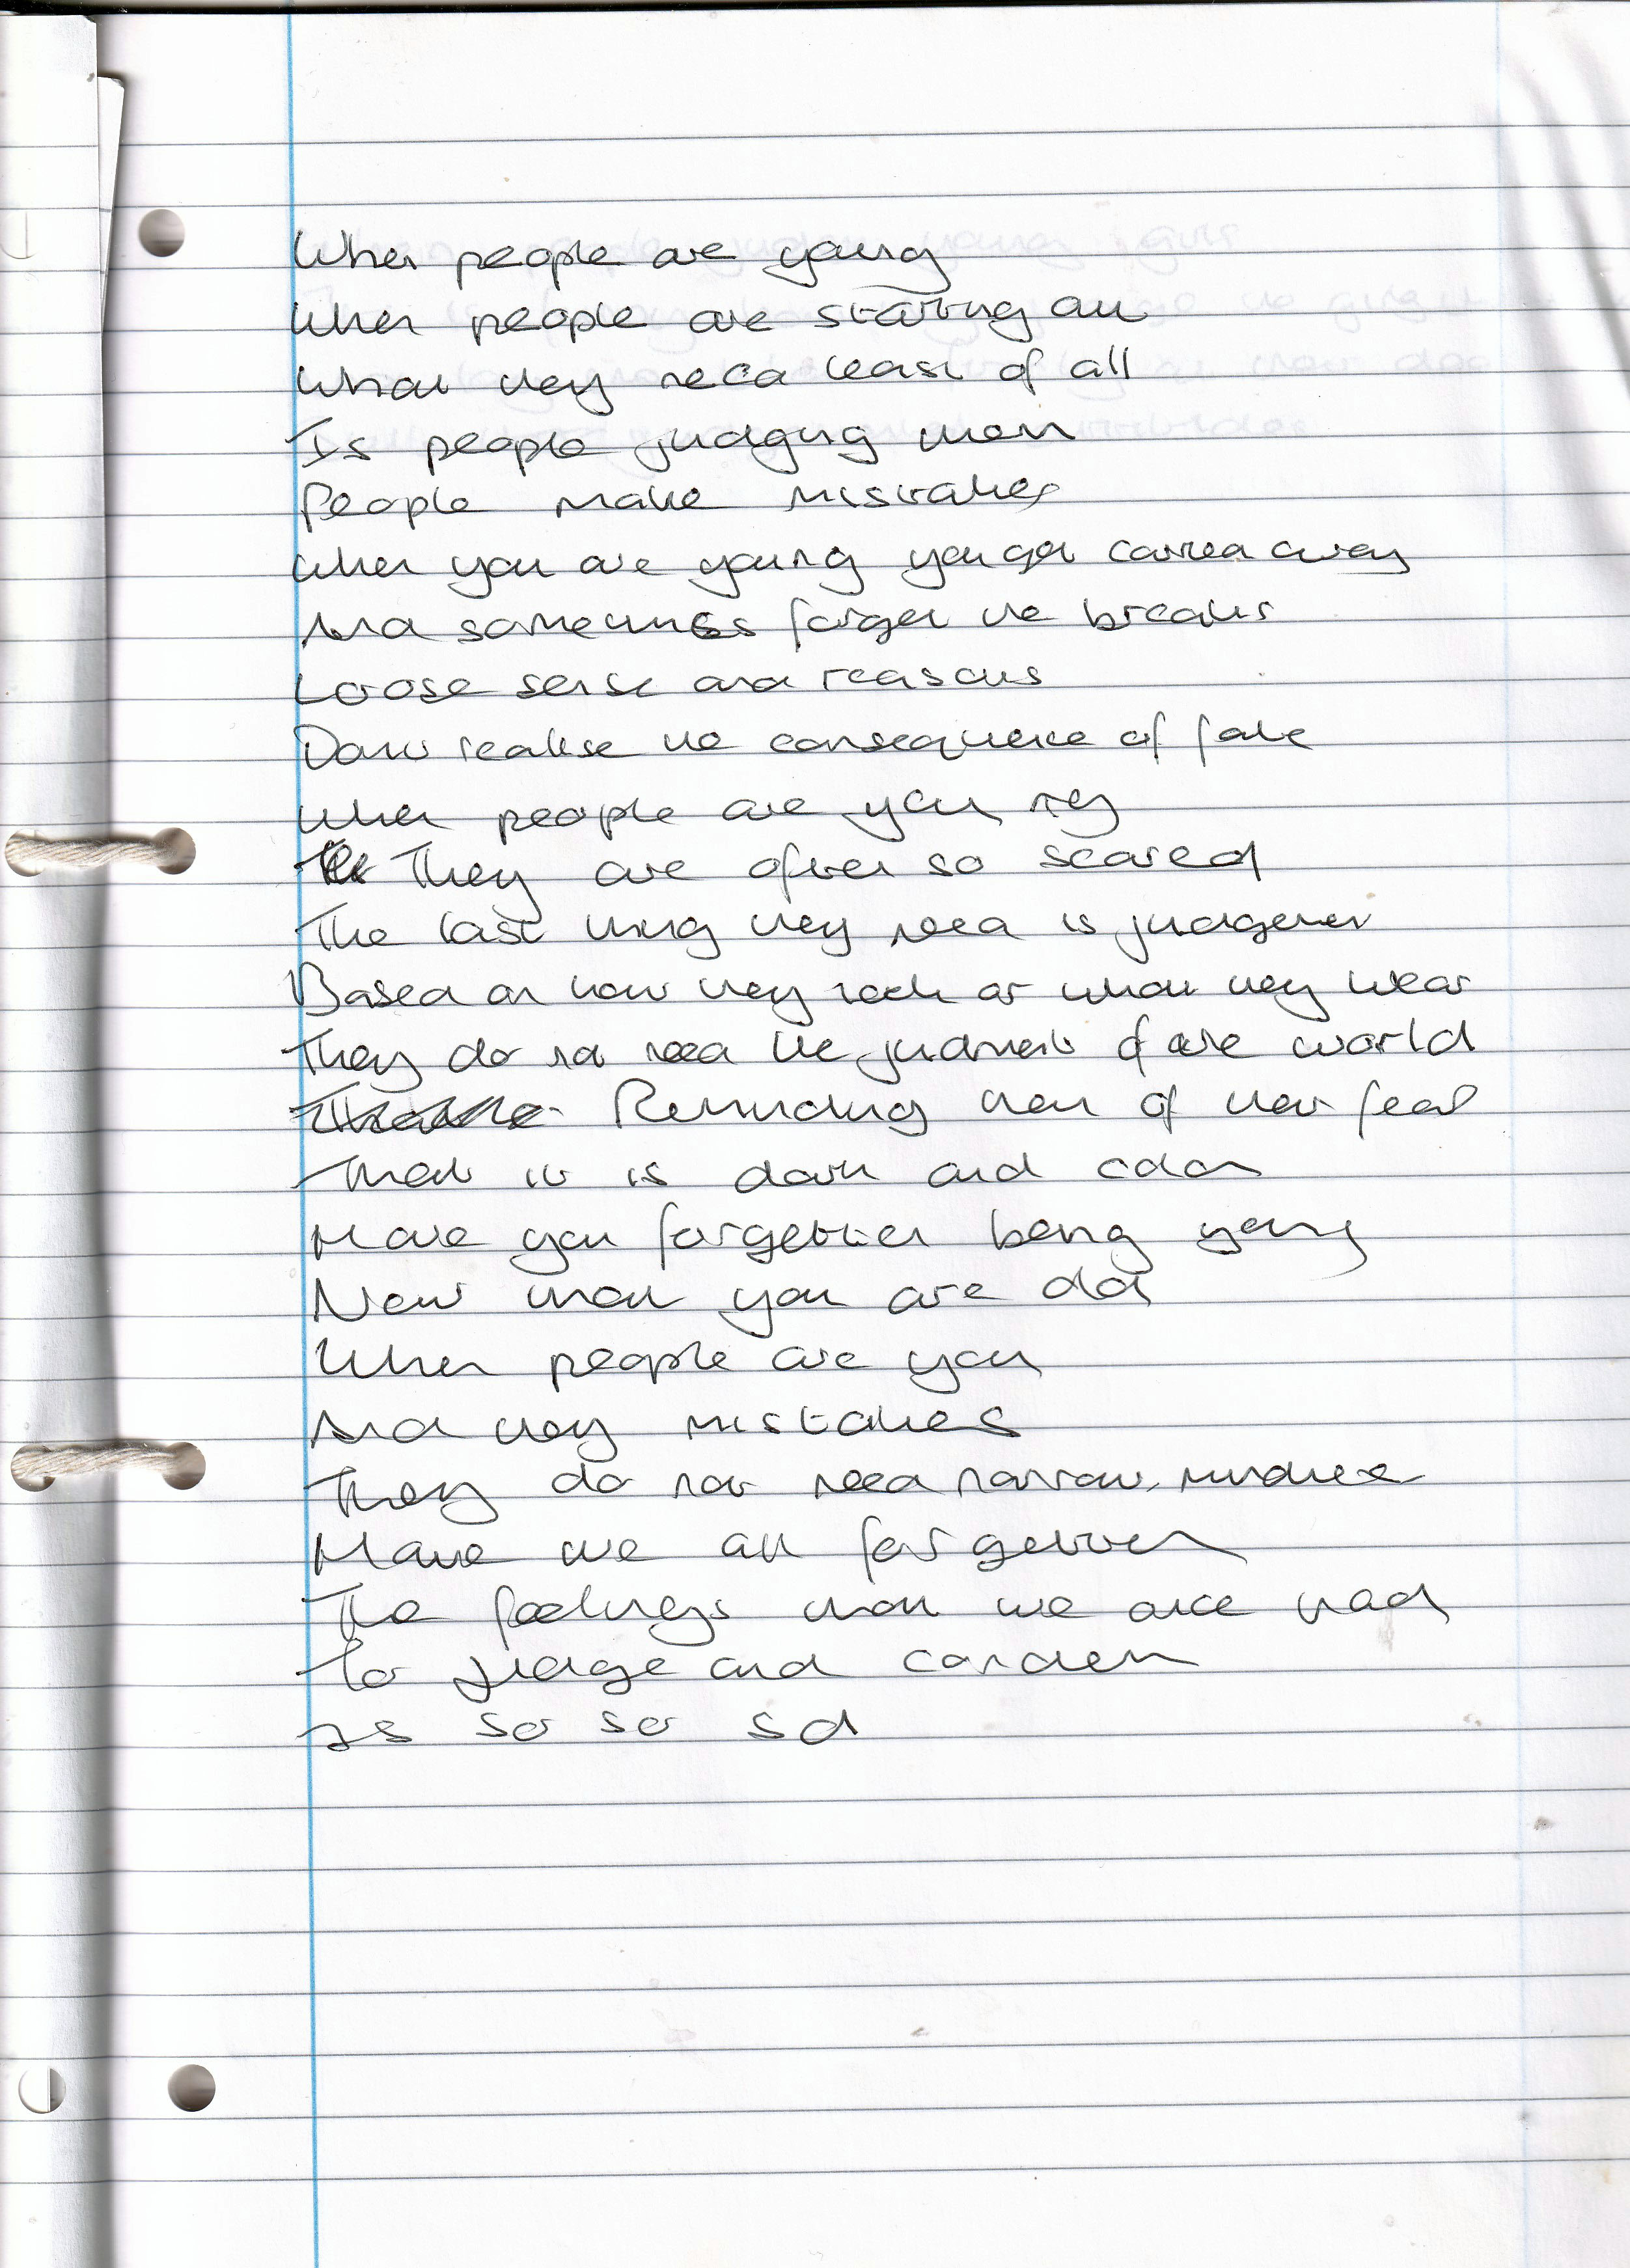 When people are young
When people are starting out
What they need least of all
Is people judging them
People make mistakes
When you are young you get carried away
And sometimes forget the breaks
Loose sense and reasons
Dont realise the consequence of fate
When people are young
They are often so scared
The last thing they need is judgement
Based on how they look or what they wear
They do not need the judments of the world
Reminding them of their fear
That it is dark and cold
Have you forgotten being young
Now that you are old
When people are you
And they mistakes
They do not need narrow minded
Have we all forgotten
The feelings that we once had
To judge and condem
Is so so sd